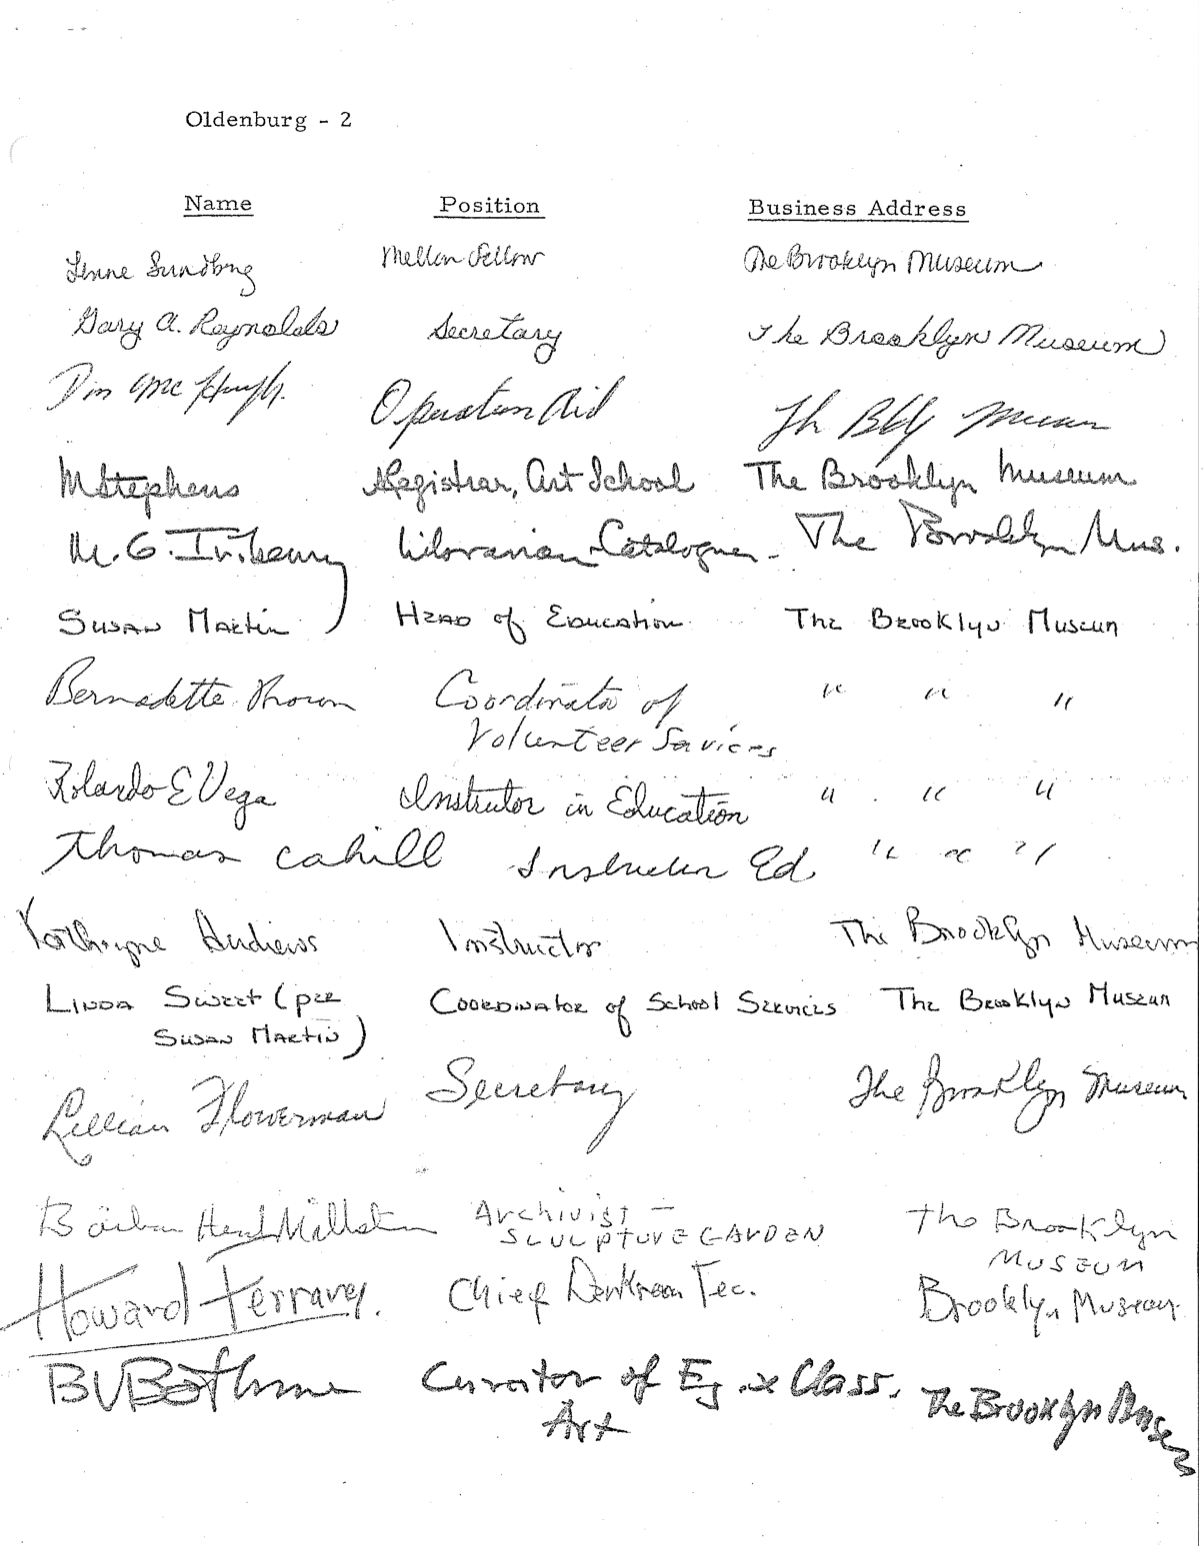 Oldenburg - 2
Name Position Business Address
Sundberg Mellon Fellow The Brooklyn Museum
Gary A. Reynolds Secretary The Brooklyn Museum
Mc Hugh. Operation Aid Th Bkly Museum
MStephens Registrar, Art School The Brooklyn Museum
M. G. Librarian-Cataloguer - The Brooklyn Mus.
Susan Martin Head of Education The Brooklyn Museum
Bernadette Coordinator of " " "
Volunteer Services
Rolando E Vega Instructor in Education " " "
Thomas Cahill Instructor Ed. " " "
Kathryne Andrews Instructor The Brooklyn Museum
Linda Sweet (per Coordinator of School Services The Brooklyn Museum
Susan Martin)
Lillian Flowerman Secretary The Brooklyn Museum
Barbara Head Millstein Archivist — The Brooklyn
Sculpture Garden Museum
Howard Chief Darkroom Tec. Brooklyn Museum
BVBothmer Curator of Eg. & Class. The Brooklyn Museum
Art